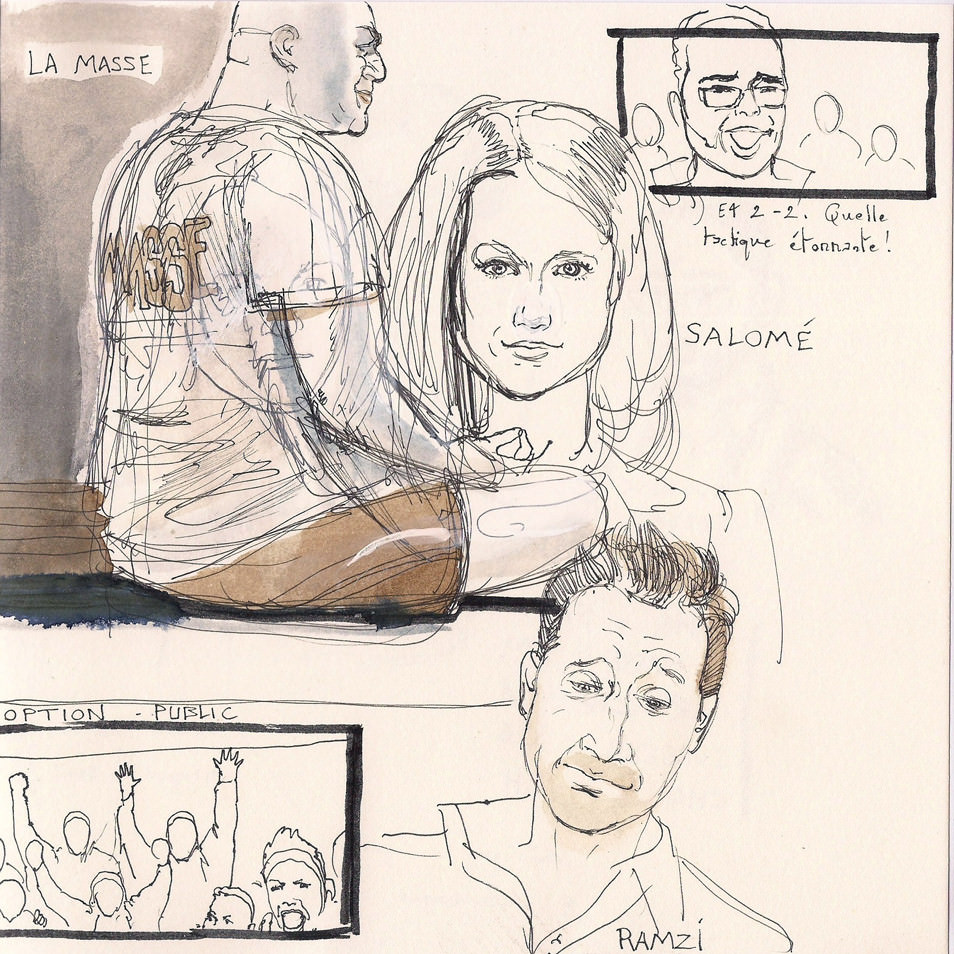 LA MASSE
MASSE
ET 2-2. Quelle
tactique étonnante!
SALOMÉ
OPTION - PUBLIC
RAMZI